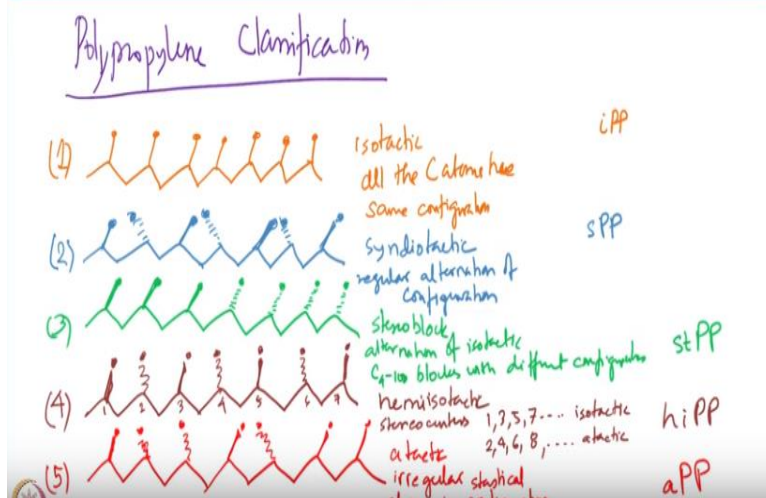 Polypropylene Classification
(1) isotactic iPP
all the C atoms have
same configuration
(2) syndiotactic sPP
regular alternation of
configuration
(3) stereoblock
alternation of isotactic stPP
blocks with different configuration
(4) 1 2 3 4 5 6 7 hemiisotactic
stereocenters 1,3,5,7.... isotactic hiPP
2,4,6,8,.... atactic
(5) atactic
irregular statistical aPP